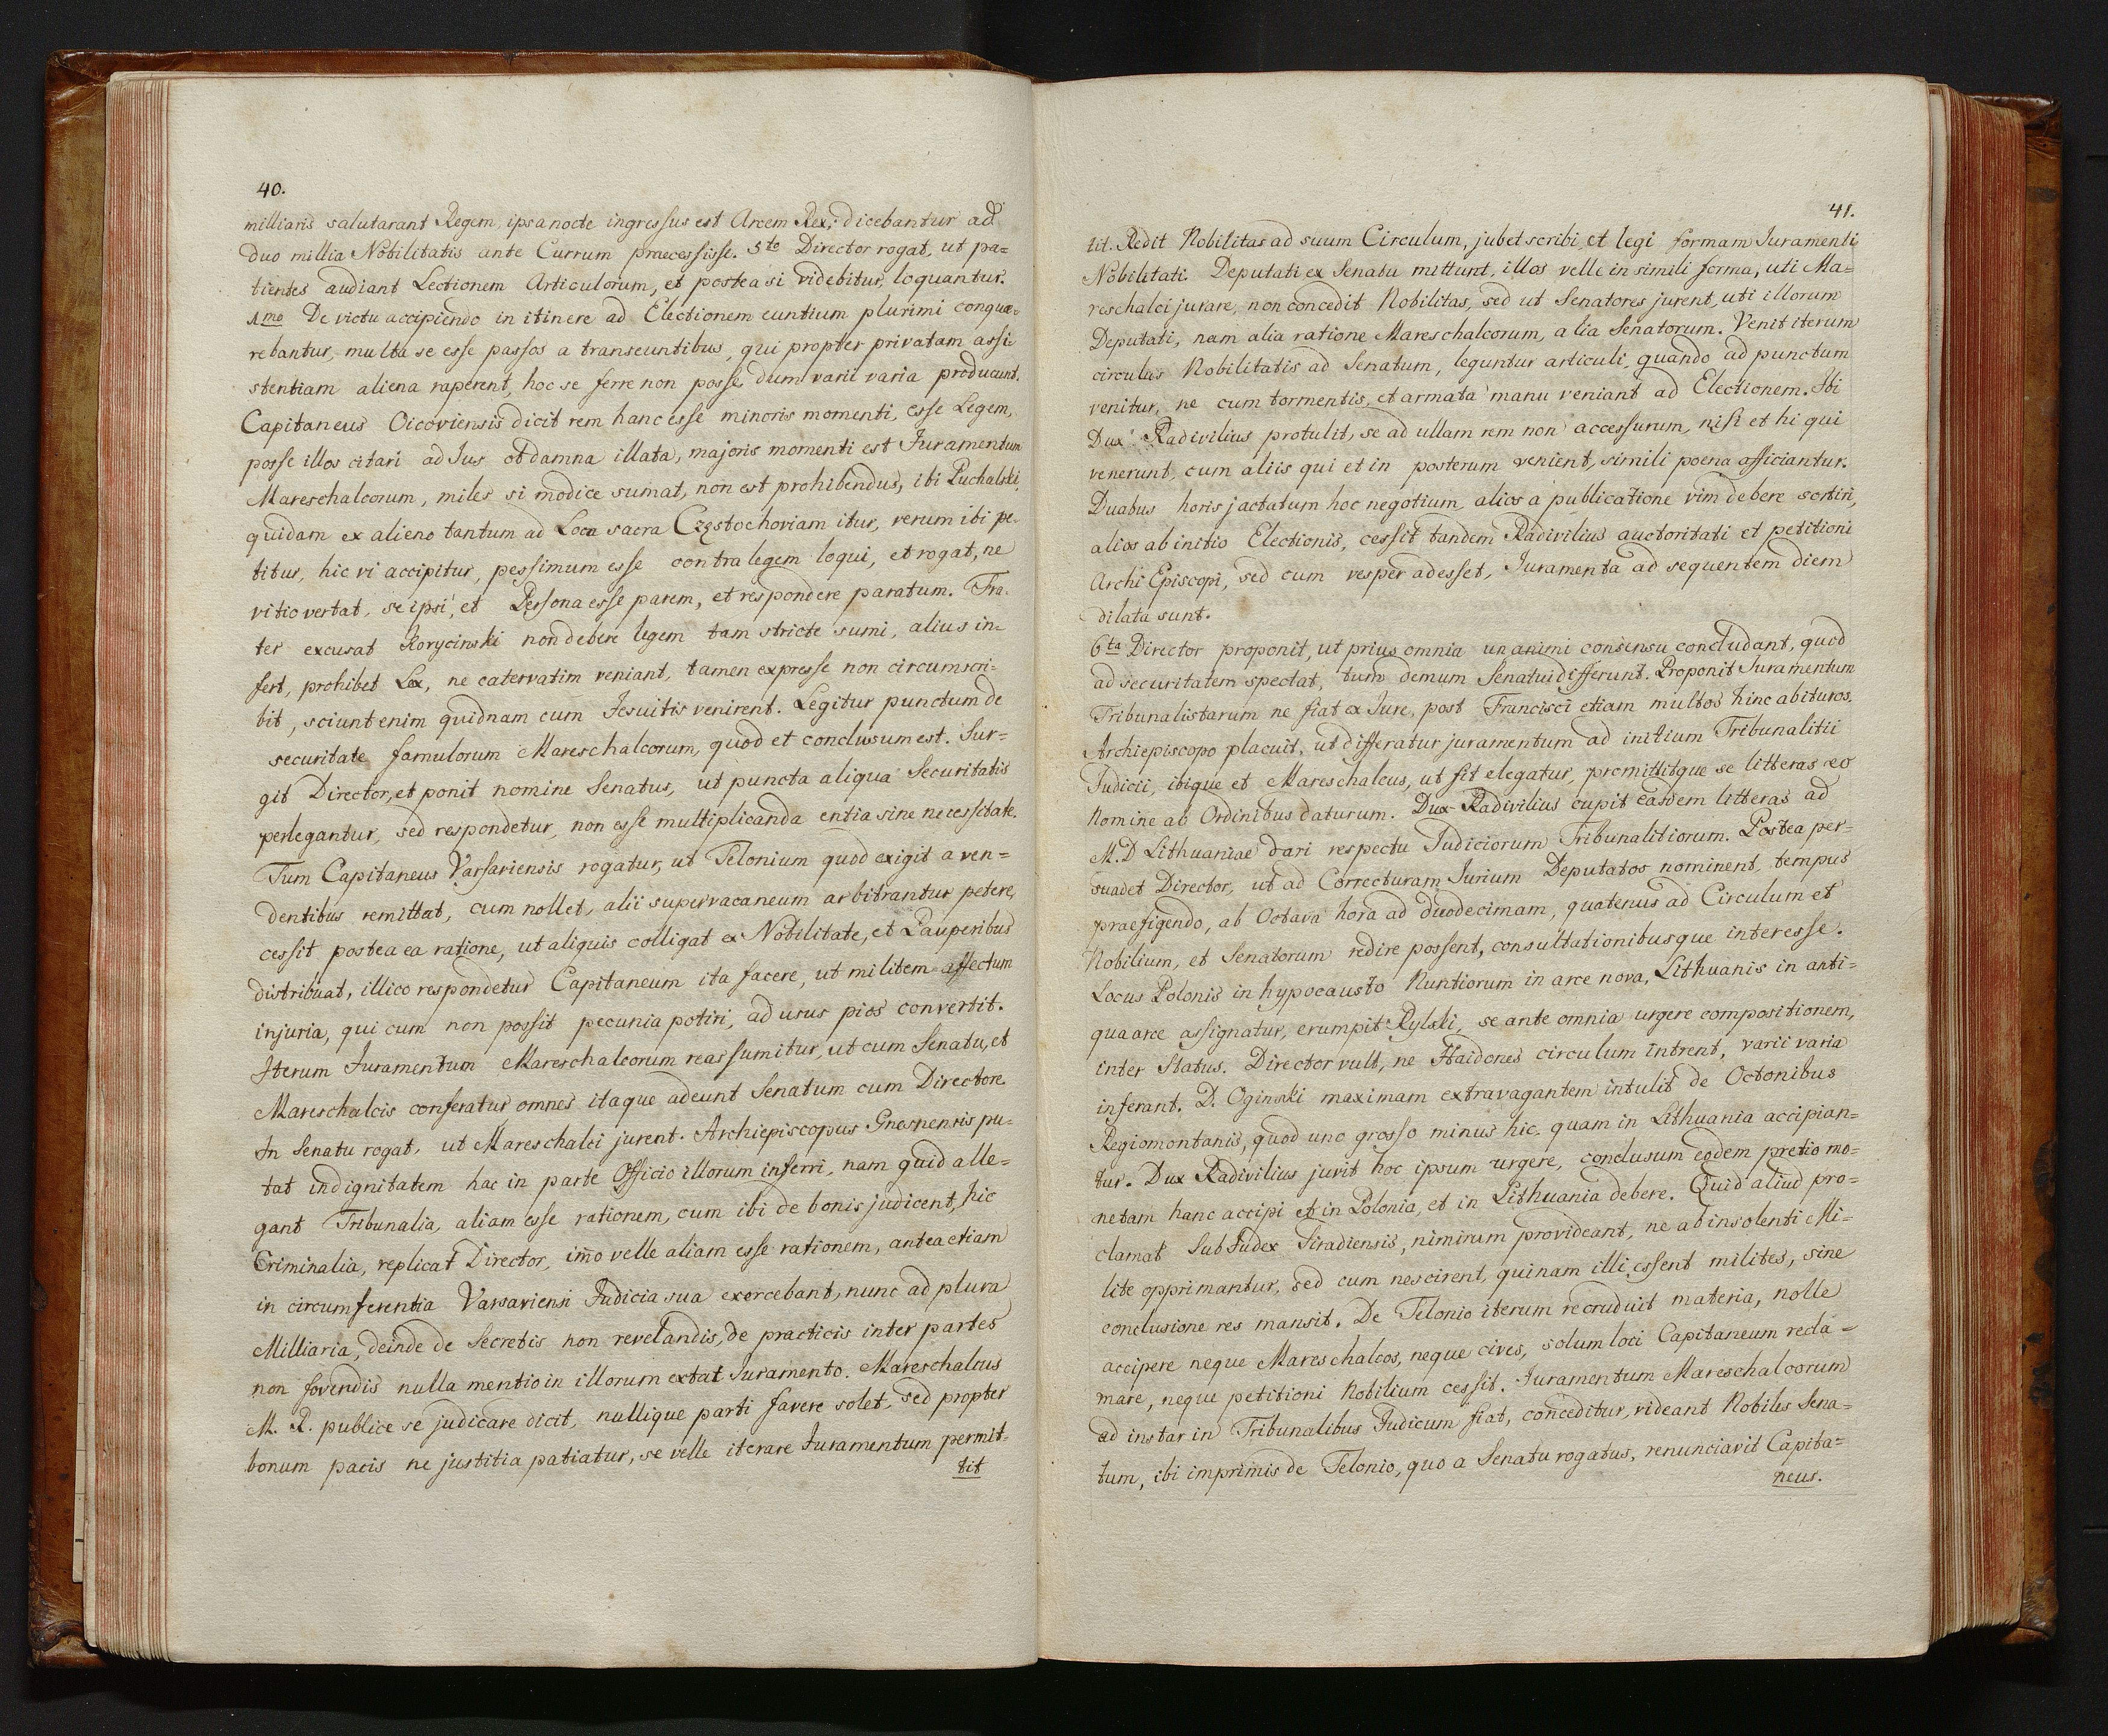 40.
milliaris salutarant Regem, ipsa nocte ingressus est Arcem Rex; dicebantur ad
duo millia Nobilitatis ante Currum praecessisse. 5to Director rogat, ut pa=
tientes audiant Lectionem Articulorum, et postea si videbitur, loquantur.
1mo De victu accipiendo in itinere ad Electionem euntium plurimi conque=
rebantur, multa se esse passos a transeuntibus, qui propter privatam assi=
stentiam aliena raperent, hoc se ferre non posse, dum varii varia producunt.
Capitaneus Oicoviensis dicit rem hanc esse minoris momenti, esse Legem,
posse illos citari ad Jus ob damna illata, majoris momenti est Juramentum
Mareschalcorum, miles si modice sumat, non est prohibendus, ibi Puchalski,
quidam ex alieno tantum ad Loca sacra Częstochoviam itur, verum ibi pe=
titur, hic vi accipitur, pessimum esse contra legem loqui, et rogat, ne
vitio vertat, se ipsi, et Persona esse parem, et respondere paratum. Fra=
ter excusat Korycinski non debere legem tam stricte sumi, alius in=
fert, prohibet Lex, ne catervatim veniant, tamen expresse non circumscri=
bit, sciunt enim quidnam cum Jesuitis venirent. Legitur punctum de
securitate famulorum Mareschalcorum, quod et conclusum est. Sur=
git Director, et ponit nomine Senatus, ut puncta aliqua Securitatis
perlegantur, sed respondetur, non esse multiplicanda entia sine necessitate.
Tum Capitaneus Varsaviensis rogatur, ut Telonium quod exigit a ven=
dentibus remittat, cum nollet, alii supervacaneum arbitrantur petere,
cessit postea ea ratione, ut aliquis colligat ex Nobilitate, et Pauperibus
distribuat, illico respondetur Capitaneum ita facere, ut militem affectum
injuria, qui cum non possit pecunia potiri, ad usus pios convertit.
Iterum Juramentum Mareschalcorum reassumitur, ut cum Senatu, et
Mareschalcis conferatur omnes itaque adeunt Senatum cum Directore.
In Senatu rogat, ut Mareschalci jurent. Archiepiscopus Gnesnensis pu=
tat indignitatem hac in parte Officio illorum inferri, nam quid alle=
gant Tribunalia, aliam esse rationem, cum ibi de bonis judicent, hic
Criminalia, replicat Director, imo velle aliam esse rationem, antea etiam
in circumferentia Varsaviensi Judicia sua exercebant, nunc ad plura
Milliaria, deinde de Secretis non revelandis, de practicis inter partes
non fovendis nulla mentio in illorum extat Juramento. Mareschalcus
M. R. publice se judicare dicit, nullique parti favere solet, sed propter
bonum pacis ne justitia patiatur, se velle iterare Juramentum permit=
tit
41.
tit. Redit Nobilitas ad suum Circulum, jubet scribi, et legi formam Juramenti
Nobilitati. Deputati ex Senatu mittunt, illos velle in simili forma, uti Ma=
reschalci jurare, non concedit Nobilitas, sed ut Senatores jurent, uti illorum
Deputati, nam alia ratione Mareschalcorum, alia Senatorum. Venit iterum
circulus Nobilitatis ad Senatum, leguntur articuli, quando ad punctum
venitur, ne cum tormentis, et armata manu veniant ad Electionem. Ibi
Dux Radivilius protulit, se ad ullam rem non accessurum, nisi et hi qui
venerunt, cum aliis qui et in posterum venient, simili poena afficiantur.
Duabus horis jactatum hoc negotium, alios a publicatione vim debere sortiri,
alios ab initio Electionis, cessit tandem Radivilius auctoritati et petitioni
Archi Episcopi, sed cum vesper adesset, Juramenta ad sequentem diem
dilata sunt.
6ta Director proponit, ut prius omnia unanimi consensu concludant, quod
ad securitatem spectat, tum demum Senatui differunt. Proponit Juramentum
Tribunalistarum ne fiat ex Jure, post Francisci etiam multos hinc abituros.
Archiepiscopo placuit, ut differatur juramentum ad initium Tribunalitii
Judicii, ibique et Mareschalcus, ut fit elegatur, promittitque se litteras eo
Nomine ab Ordinibus daturum. Dux Radivilius cupit easdem litteras ad
M. D Lithuaniae dari respectu Judiciorum Tribunalitiorum. Postea per=
suadet Director, ut ad Correcturam Jurium Deputatos nominent, tempus
praefigendo, ab Octava hora ad duodecimam, quatenus ad Circulum et
Nobilium, et Senatorum redire possent, consultationibusque interesse.
Locus Polonis in hypocausto Nuntiorum in arce nova, Lithuanis in anti=
qua arce assignatur, erumpit Rylski, se ante omnia urgere compositionem,
inter Status. Director vult, ne Haidones circulum intrent, varii varia
inferant. D. Oginski maximam extravagantem intulit de Octonibus
Regiomontanis, quod uno grosso minus hic, quam in Lithuania accipian=
tur. Dux Radivilius juvit hoc ipsum urgere, conclusum eodem pretio mo=
netam hanc accipi et in Polonia, et in Lithuania debere. Quid aliud pro=
clamat SubJudex Siradiensis, nimirum provideant, ne ab insolenti Mi=
lite opprimantur, sed cum nescirent, quinam illi essent milites, sine
conclusione res mansit. De Telonio iterum recruduit materia, nolle
accipere neque Mareschalcos, neque cives, solum loci Capitaneum recla=
mare, neque petitioni Nobilium cessit. Juramentum Mareschalcorum
ad instar in Tribunalibus Judicum fiat, conceditur, videant Nobiles Sena=
tum, ibi imprimis de Telonio, quo a Senatu rogatus, renunciavit Capita=
neus.